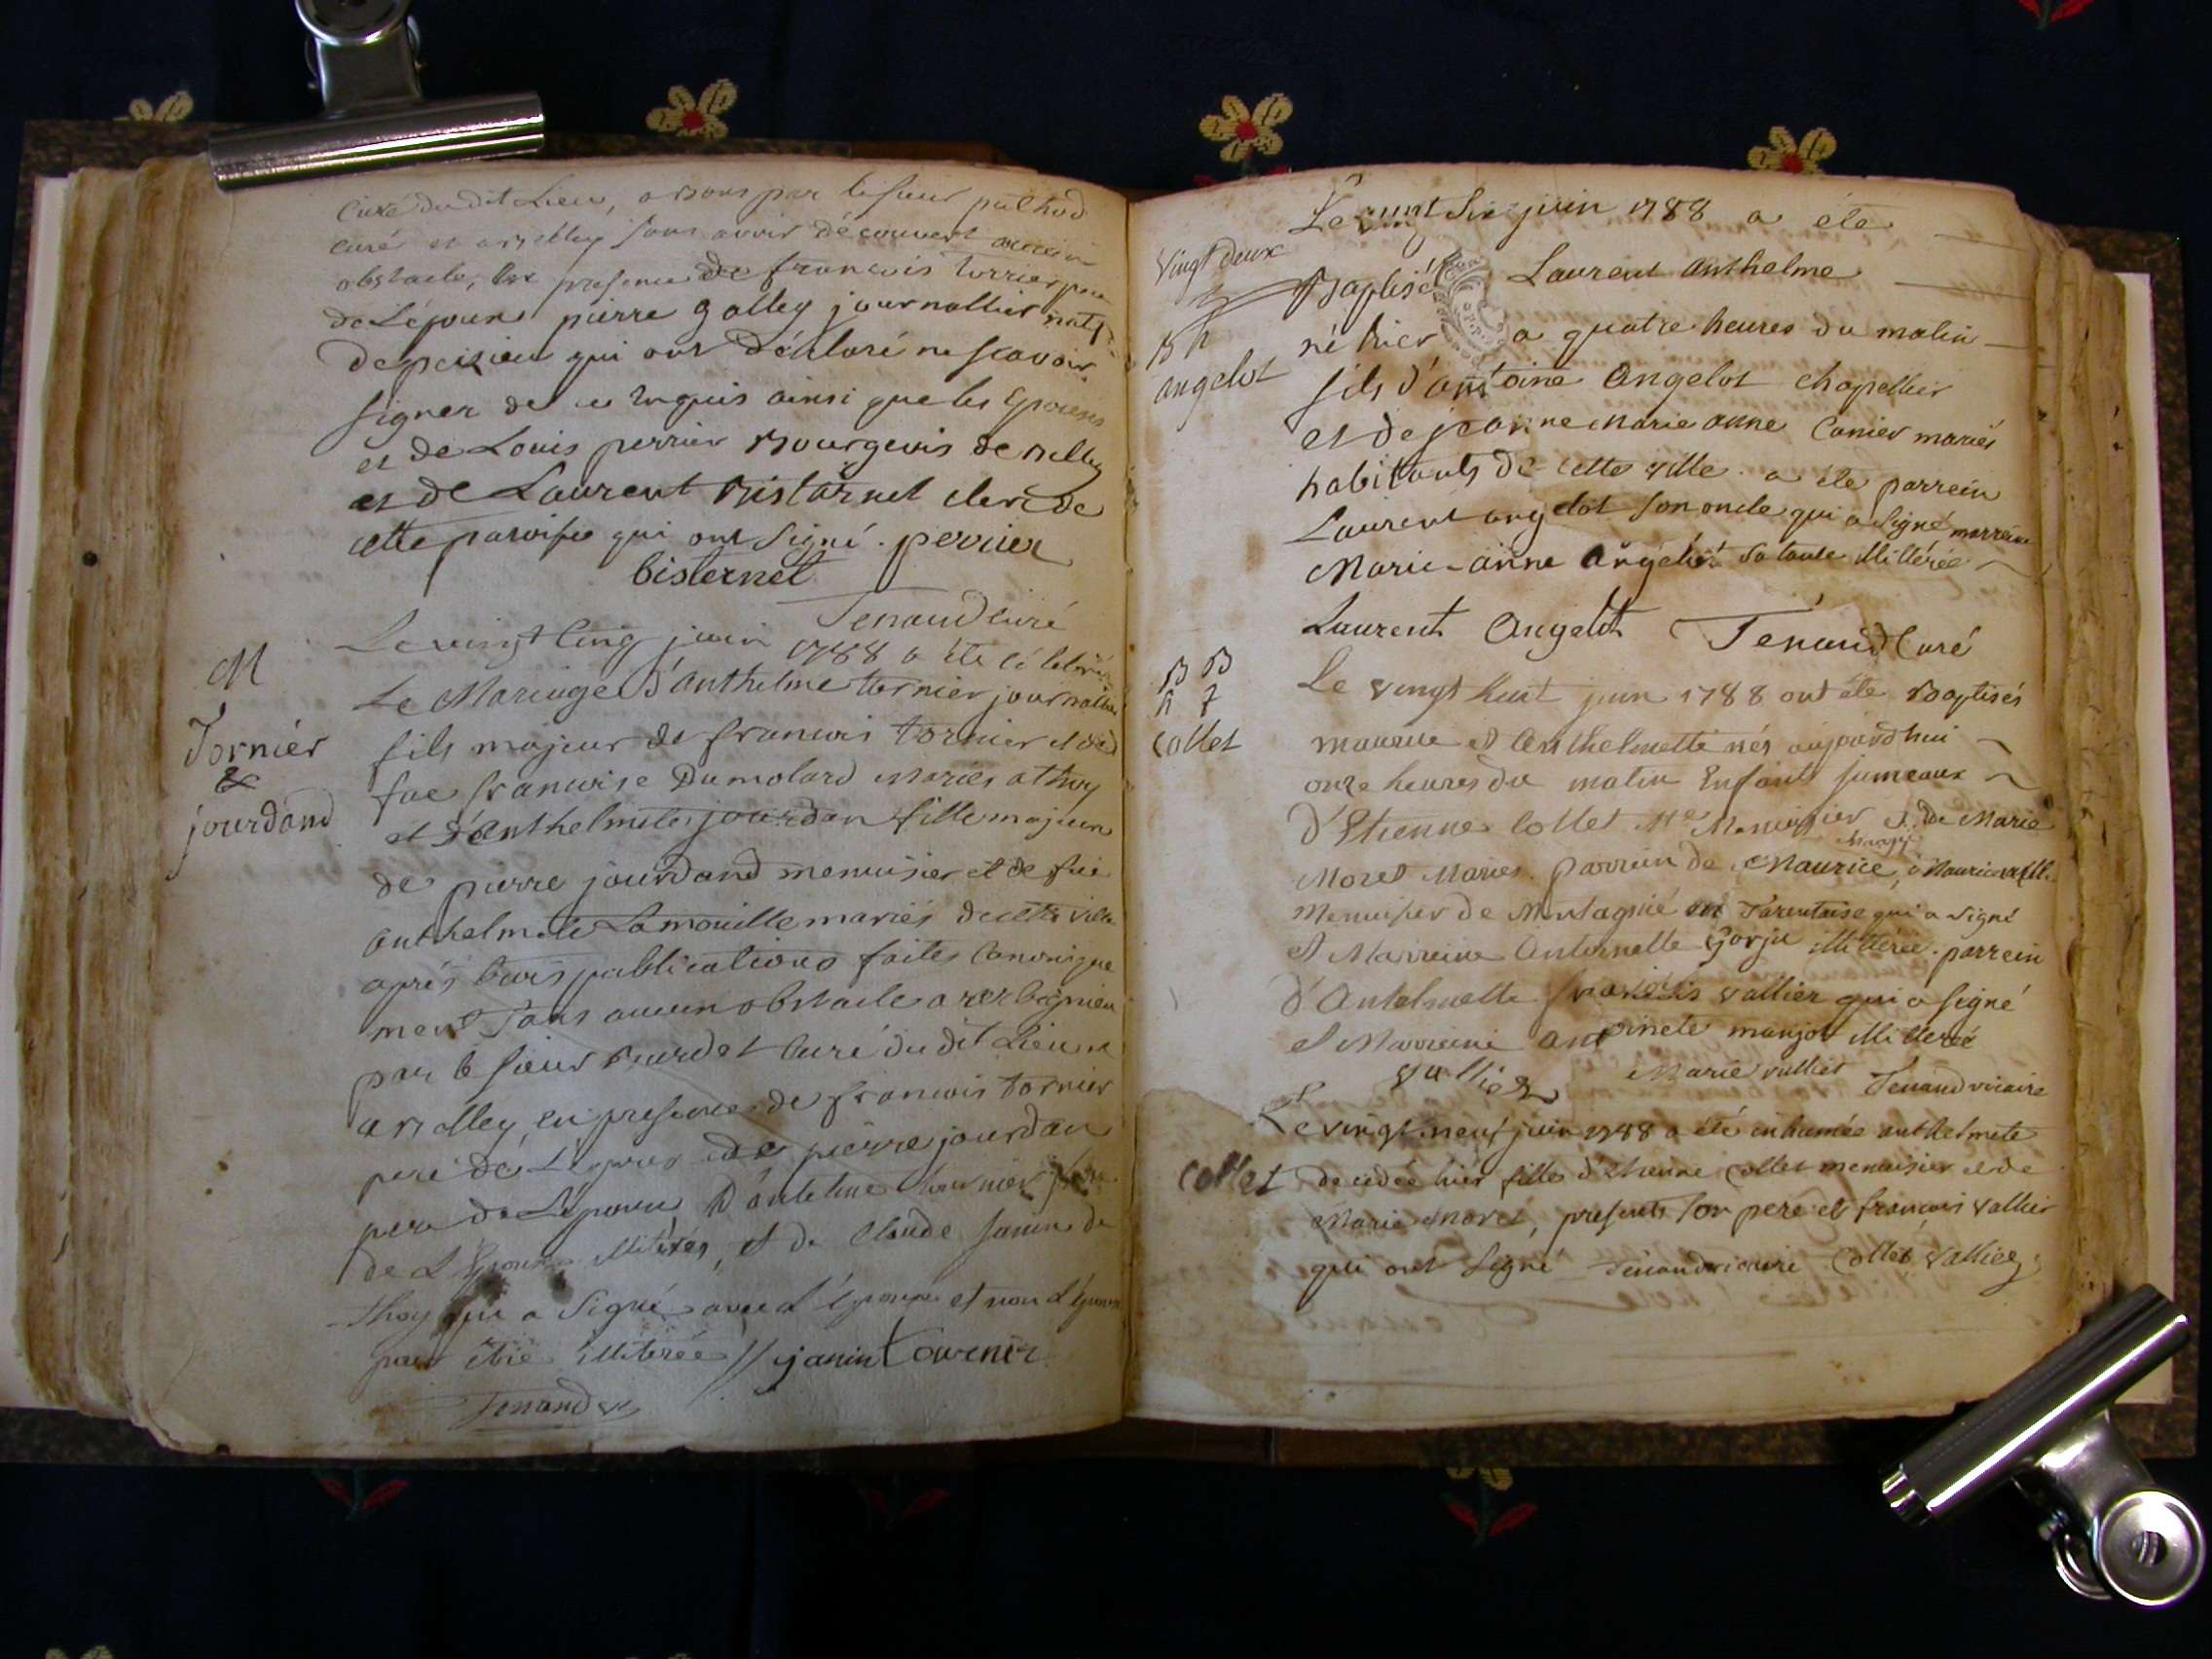 Curé dudit Lieu, a par le sieur
curé et a Belley sans avoir découvert aucun
obstacle, En presence de francois
de Lépoux pierre galley journallier
de peizieu qui ont déclaré ne scavoir
signer de ce requis ainsi que les Epouses
et de Louis perrier Bourgeois de Belley
et de Laurent Bisternel clerc de
cette paroisse qui ont signé . perrier
bisternel
Tenand curé
M
Tornier
&
jourdand
Le vingt cinq juin 1788 a été célébré
Le Mariage d'anthelme tornier journalier
fils majeur de francois tornier et de
fue francoise Dumolard Mariés a thoy
et d'Anthelmete jourdan fille majeure
de pierre jourdand menuisier et de fue
anthelmete Lamouille mariés de cette ville
aprés trois publications faites Canonique
ment sans aucun obstacle a
par le sieur curé du dit Lieu et
a Belley, en presence de francois tornier
pere de L'epoux de pierre jourdan
pere de L'épouse D'antelme tournier frere
de L'Epoux illiterés, et de Claude Janin de
thoy qui a signé avec L'époux et non L'épouse
pour être illiterée // janin tournier
Tenand
vingt deux
B h
angelot
Le vingt six juin 1788 a été
Baptisé Laurent Anthelme
né hier a quatre heures du matin
fils d'antoine Angelot chapellier
et de jeanne marie anne Canier mariés
habitants de cette ville . a été parrein
Laurent angelot son oncle qui a signé marreine
Marie-anne Angelot sa tante illiterée
Laurent Angelot Tenand Curé
B B
h f
Collet
Le vingt huit juin 1788 ont été Baptisés
maurice et Anthelmette nés aujourd'hui
onze heures du matin Enfants jumeaux
d'Etienne Collet Me Menuisier et de Marie
Moret Mariés . parrein de Maurice,
Menuisier de Montagnié en Tarentaise qui a signé
et Marreine Antoinette Gorju illiterée . parrein
d'Antelmette francois vallier qui a signé
et Marreine antoinete manjot illiterée
vallier Marie vulliet Tenand vicaire
Collet
Le vingt neuf juin 1788 a été inhumée anthelmete
decedée hier fille d'etienne Collet menuisier et de
Marie moret, presents son pere et francois vallier
qui ont signé Tenand vicaire Collet vallier